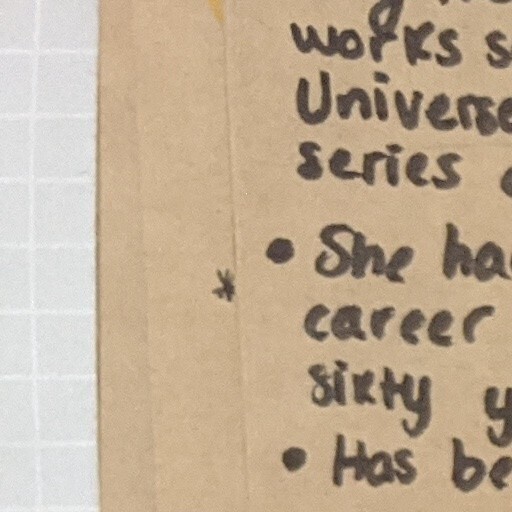 works
Universe
series
• She
* career
sixty
• Has